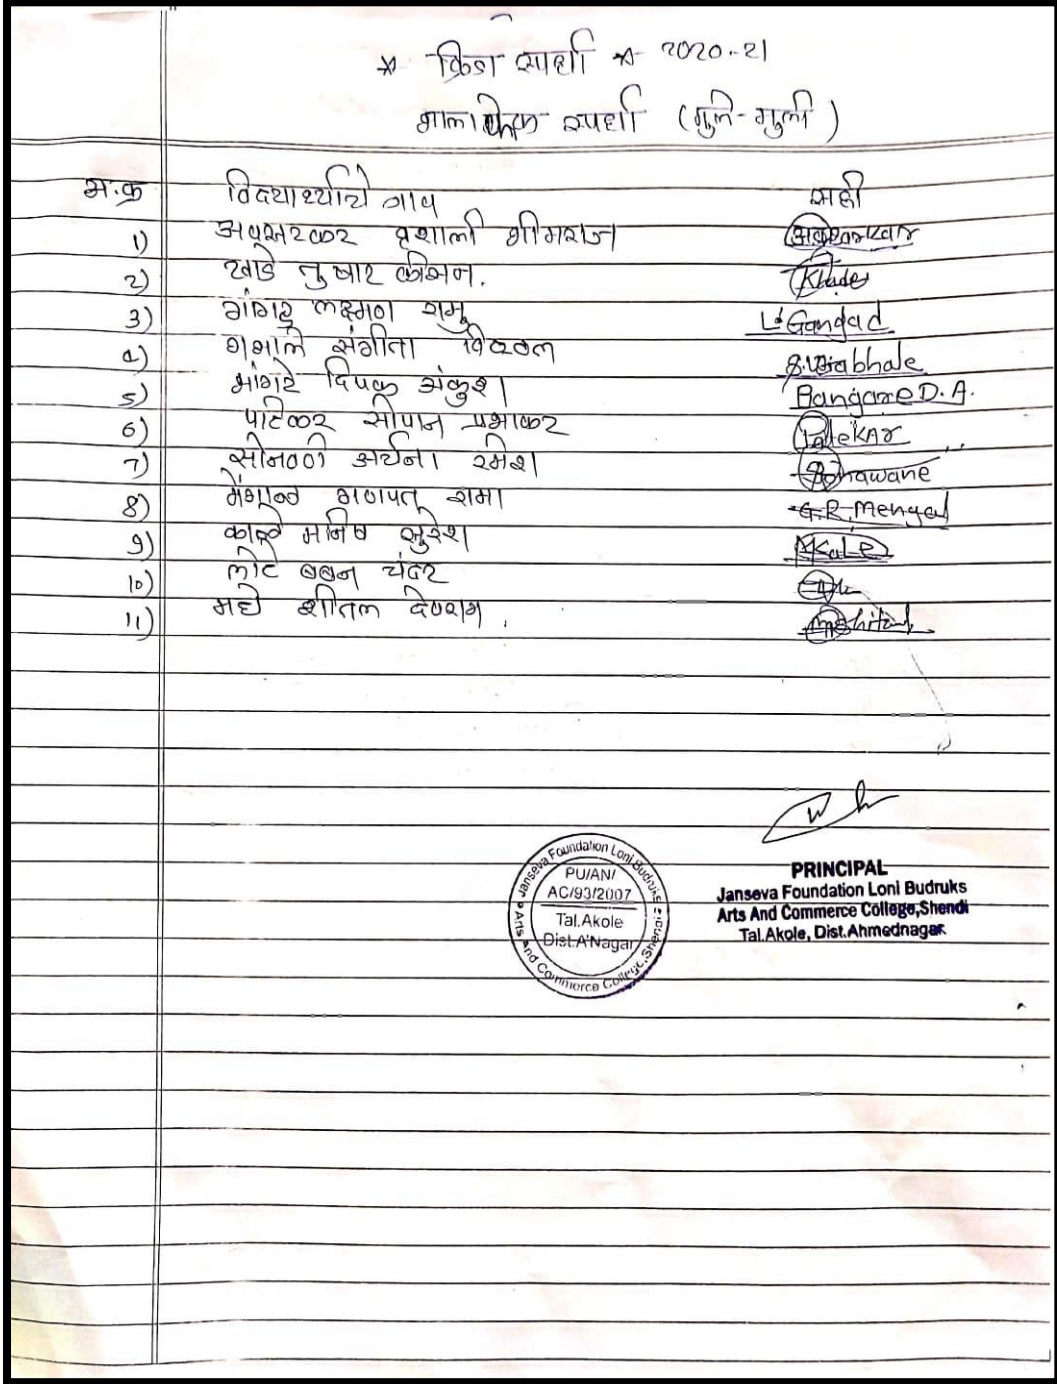 * क्रिडा स्पर्धा * 2020-21
भालाफेक स्पर्धा (मुले-मुली)
अ.क्र विदयार्थ्याचे नाव सही
1) अवसरकर वृशाली भीमराज
2) खाडे तुषार कीसन. Khade
3) गांगड लक्ष्मण रामु L. Gangad
4) गभाले संगीता विठ्ठल S.V.Gabhale
5) भांगरे दिपक अंकुश Bangare D.A.
6) पाटेकर सोपान प्रभाकर Patekar
7) सोनवणे अर्चना रमेश Sonawane
8) मेंगाळ गणपत रामा G.R.Mengal
9) काळे मनिष सुरेश MKale
10) लोटे बबन चंदर
11) मधे शीतल देवराम.
PRINCIPAL
Janseva Foundation Loni Budruks
Arts And Commerce College,Shendi
Tal.Akole, Dist.Ahmednagar.
Janseva Foundation Loni Budruks
Arts And Commerce College, Shendi
PU/AN/
AC/93/2007
Tal.Akole
Dist.A'Nagar